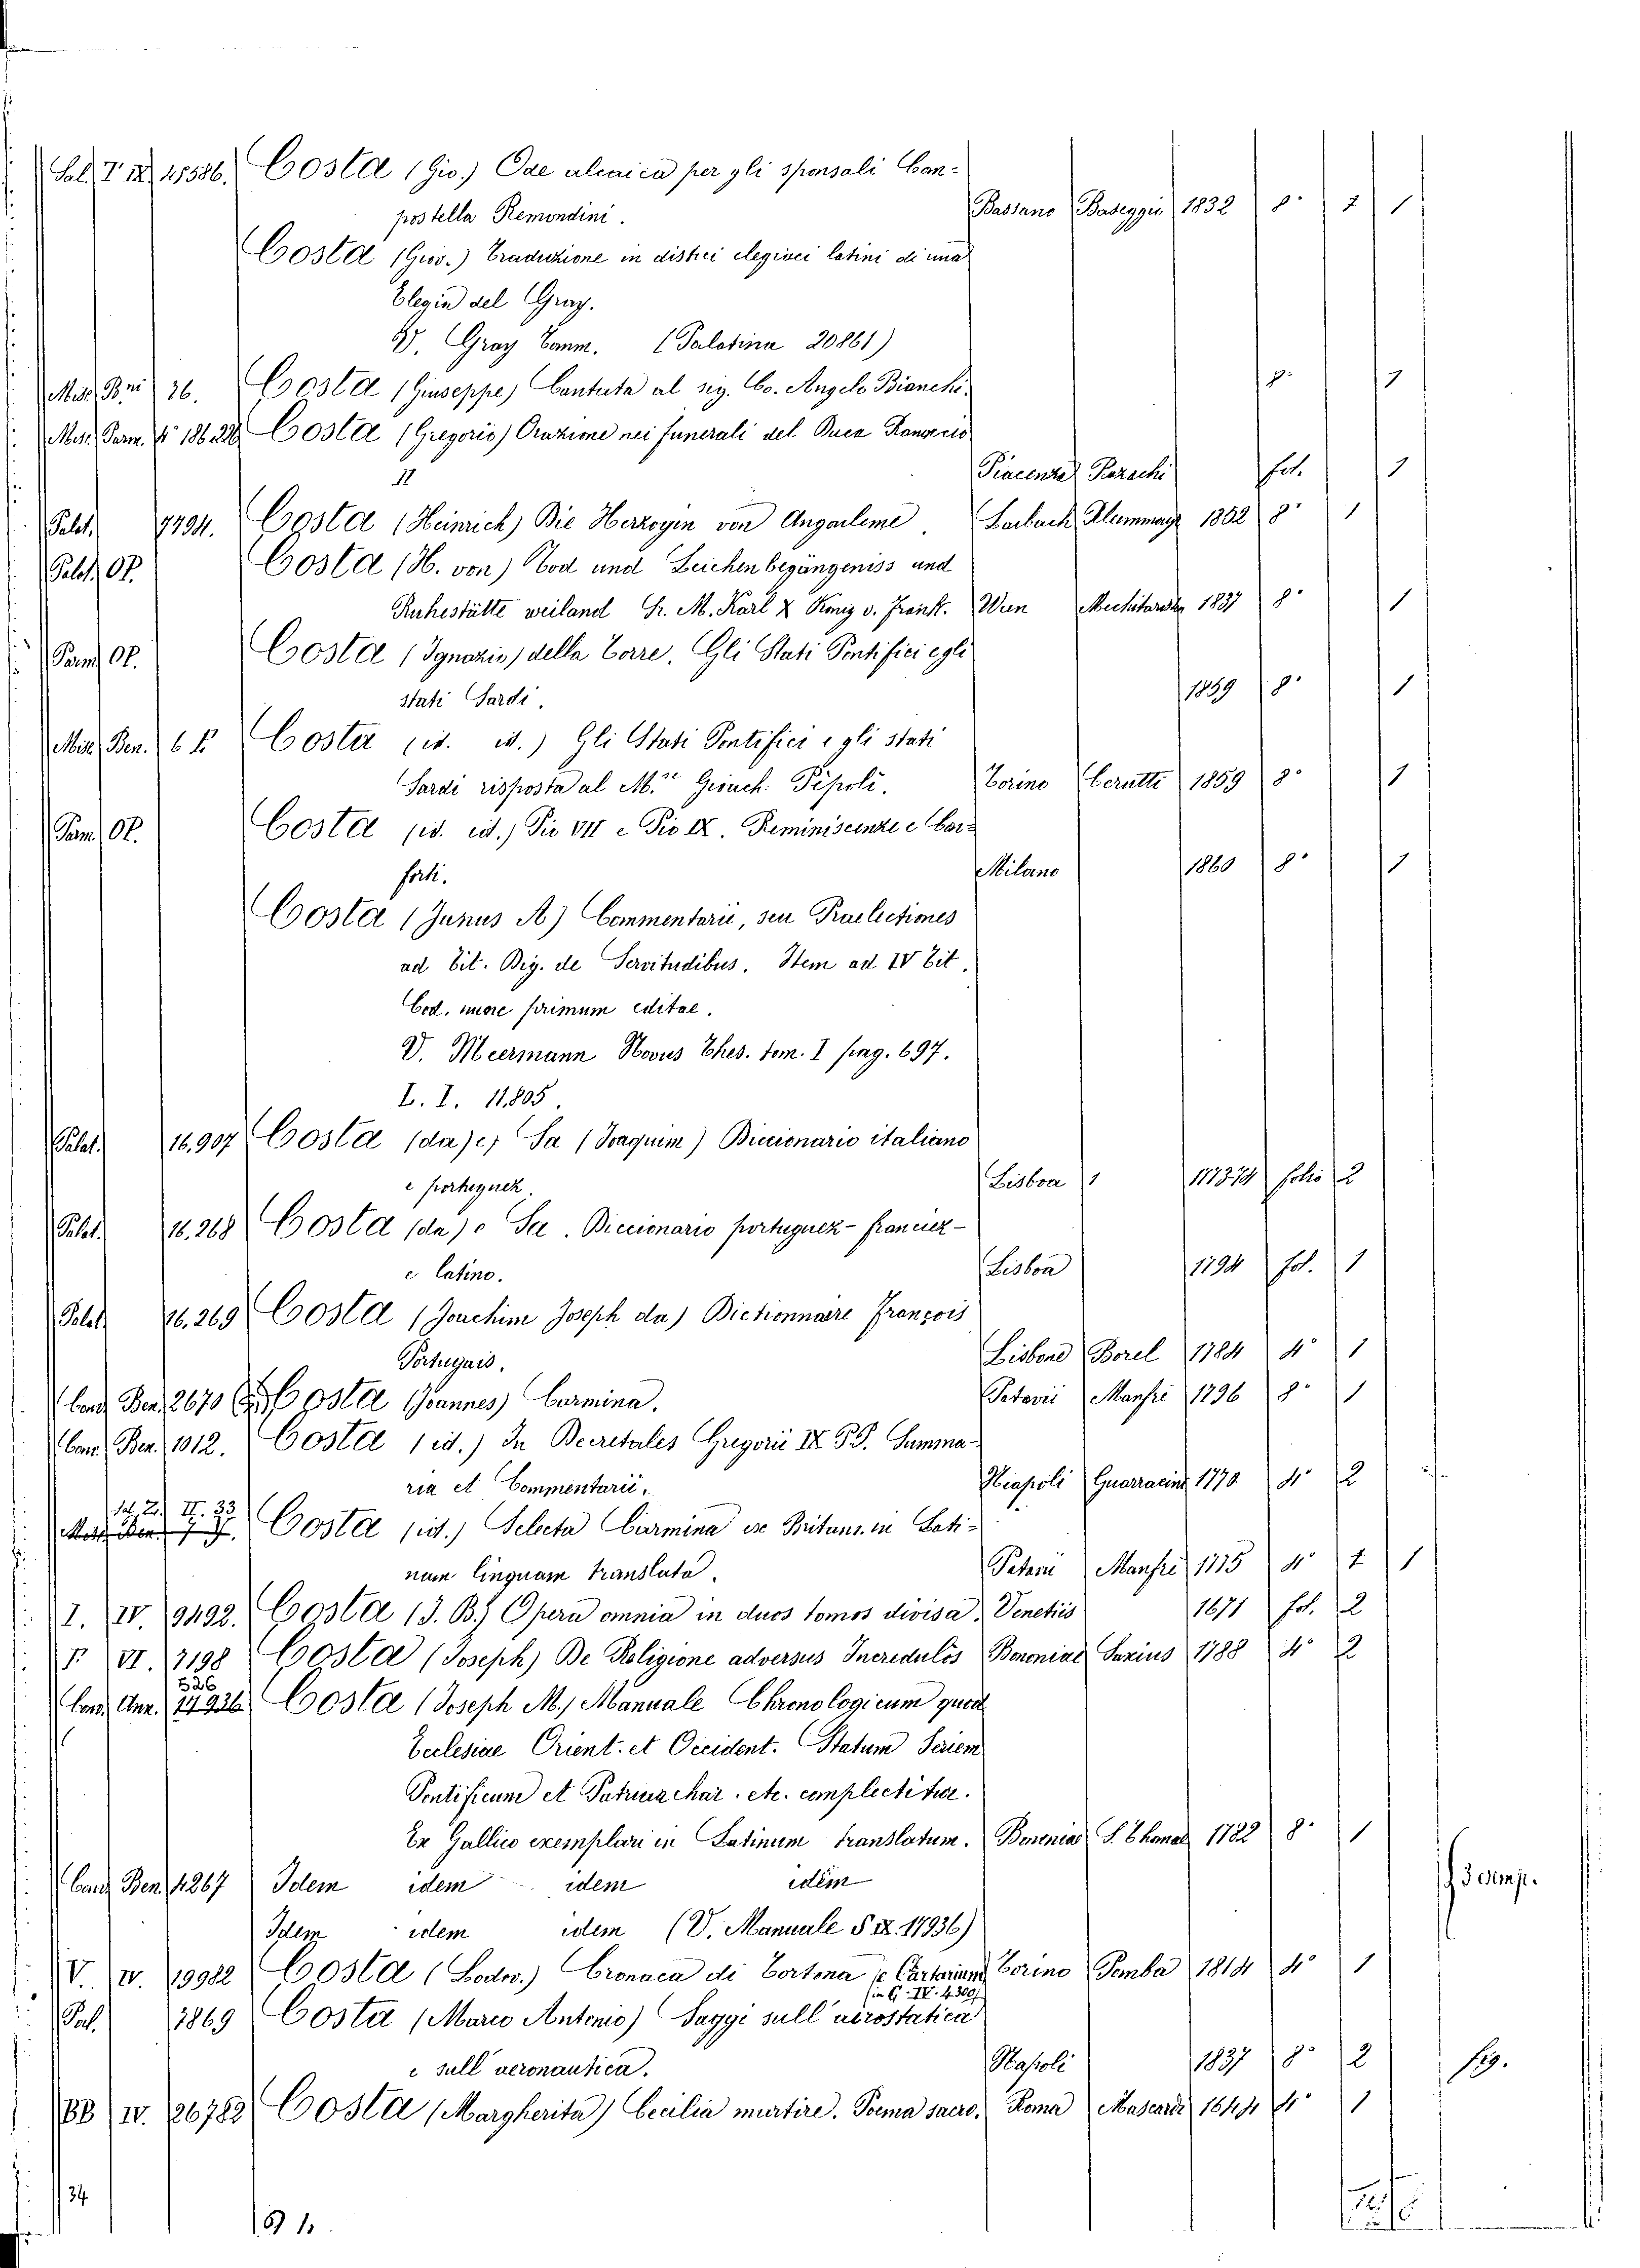 Sal. T. IX 21586. Costa (Gio.) Ode alcaica per gli sponsali Com-
postella Remondini. Bassano Baseggio 1832 8° 1
Costa (Giov.) Traduzione in distici elegiaci latini di una
Elegia del Gray.
V. Gray Tomm. (Palatina 20861)
Misc. Bni 36. Costa (Giuseppe) Cantata al sig. Co. Angelo Bianchi. 8° 1
Misc. Parm. f° 186.228 Costa (Gregorio) Orazione nei funerali del Duca Ranuccio
II Piacenza Bazachi fol. 1
Palat. 7794. Costa (Heinrich) Die Herzogin von Angouleme. Laibach Kleinmayr 1832 8° 1
Palat. OP. Costa (H. von) Tod und Leichenbegängeniss und
Ruhestätte weiland Sr. M. Karl X König v. Frank. Wien Mechitaristen 1837 8° 1
Parm. OP. Costa (Ignazio) della Torre. Gli Stati Pontifici e gli
stati Sardi. 1859 8° 1
Misc. Ben. 6 Costa (id. id.) Gli Stati Pontifici e gli stati
Sardi risposta al M.se Gioach. Pepoli. Torino Cerutti 1859 8° 1
Parm. OP. Costa (id. id.) Pio VII e Pio IX. Reminiscenze e Con-
forti. Milano 1860 8° 1
Costa (Janus A) Commentarii, seu Praelectiones
ad Tit. Dig. de Servitudibus. Item ad IV Tit.
Cod. nunc primum editae.
V. Meermann Novus Thes. tom. I pag. 697.
L. I. 11.805.
Palat. 16.907 Costa (da) e Sa (Joaquim) Diccionario italiano
e portuguez. Lisboa 1773.74 folio 2
Palat. 16.268 Costa (da) e Sa. Diccionario portuguez-francez-
e latino. Lisboa 1794 fol. 1
Palat. 16.269 Costa (Joachim Joseph da) Dictionnaire François
Portugais. Lisbone Borel 1784 4° 1
Cand. Ben. 2670 Costa (Joannes) Carmina. Patavii Manfrè 1796 8° 1
Cand. Ben. 1012. Costa (id.) In Decretales Gregorii IX PP. Summa-
ria et Commentarii. Neapoli Guarracini 1778 4° 2
Sal. Z. II. 33
Costa (id.) Selecta Carmina ex Britann. in Lati-
nam linguam translata. Patavii Manfrè 1775 4° 1
I. IV. 9492. Costa (J. B.) Opera omnia in duos tomos divisa. Venetiis 1671 fol. 2
P. VI. 7198 Costa (Joseph) De Religione adversus Incredulos Bononiae Saxius 1788 4° 2
Cand. Ann. 526 Costa (Joseph M.) Manuale Chronologicum quod
Ecclesiae Orient. et Occident. Statum Seriem
Pontificum et Patriarchar. etc. complectitur.
Ex Gallico exemplari in Latinum translatum. Bononiae S. Thomae 1782 8° 1
Cand. Ben. 4267 Idem idem idem idem 3 esemp.
Idem idem idem (V. Manuale S IX. 17936)
V. IV. 19982 Costa (Lodov.) Cronaca di Tortona (e Cartarium Torino Pomba 1814 4° 1
(in G. IV. 4.309)
Pal. 3869 Costa (Marco Antonio) Saggi sull' aerostatica
e sull' aeronautica. Napoli 1837 8° 2 fig.
BB IV. 26782 Costa (Margherita) Cecilia martire. Poema sacro. Roma Mascardi 1644 4° 1
34